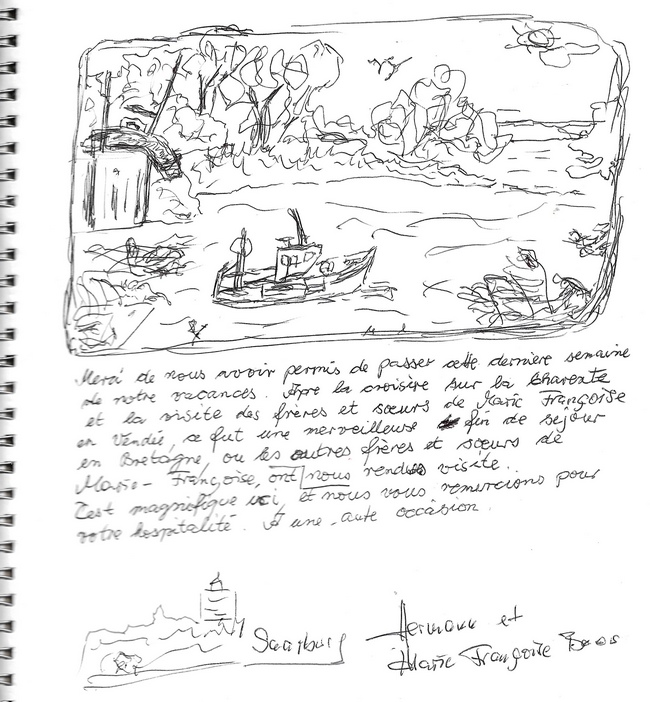 Merci de nous avoir permis de passer cette dernière semaine
de notre vacances. Apre la croisière sur la Charente
et la visite des frères et sœurs de Marie Françoise
en Vendée, ce fut une merveilleuse fin de sejour
en Bretagne, ou les autres frères et sœurs de
Marie-Françoise, ont nous rendus visite.
C'est magnifique ici, et nous vous remercions pour
votre hospitalité. A une aute occasion.
Saarburg
Hermann et
Marie Françoise